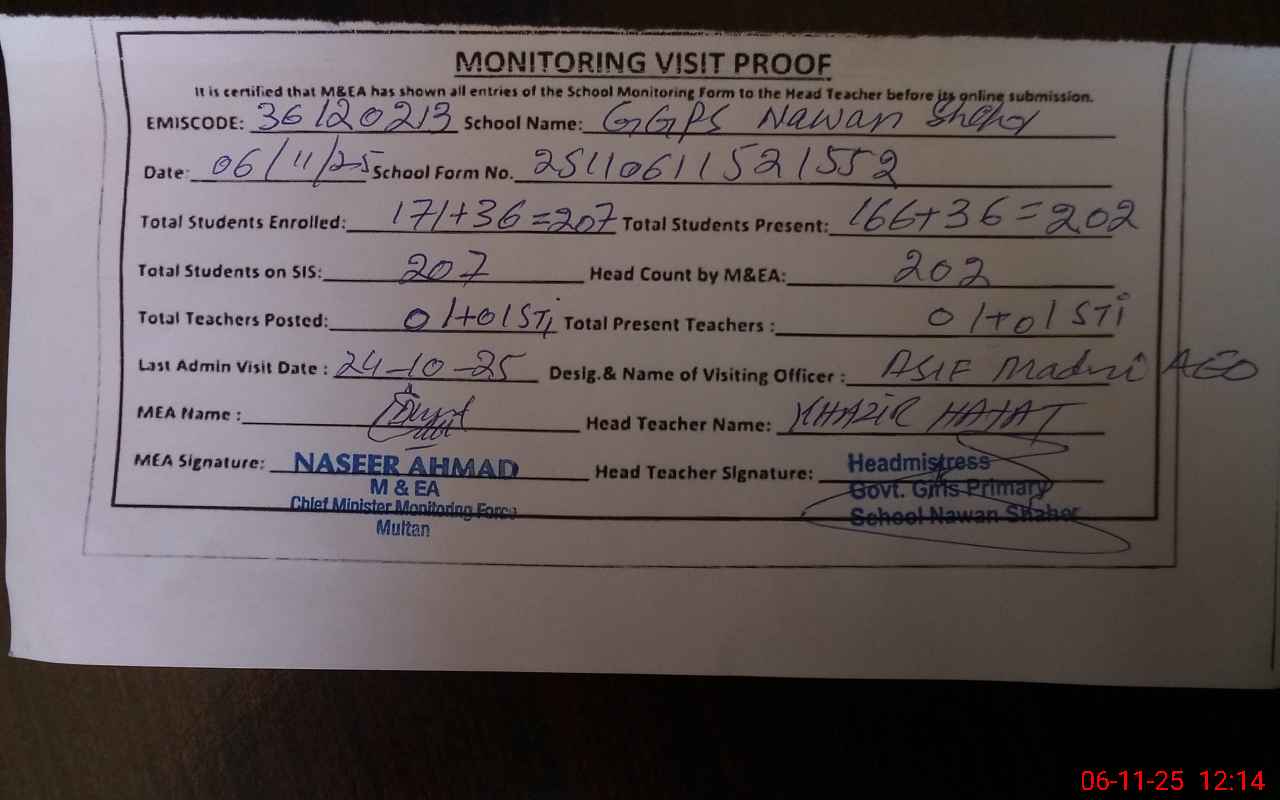 MONITORING VISIT PROOF
It is certified that M&EA has shown all entries of the School Monitoring Form to the Head Teacher before its online submission.
EMISCODE: 36120213 School Name: GGPS Nawan Sheher
Date: 06/11/25 School Form No. 25110611521552
Total Students Enrolled: 171+36=207 Total Students Present: 166+36=202
Total Students on SIS: 207 Head Count by M&EA: 202
Total Teachers Posted: 01+01STi Total Present Teachers : 01+01 STi
Last Admin Visit Date : 24-10-25 Desig.& Name of Visiting Officer : ASIF AEO
MEA Name : Head Teacher Name: KHAZIR HAYAT
MEA Signature: NASEER AHMAD Head Teacher Signature: Headmistress
M & EA Govt. Girls Primary
Chief Minister Monitoring Force School Nawan Shaher
Multan
06-11-25 12:14